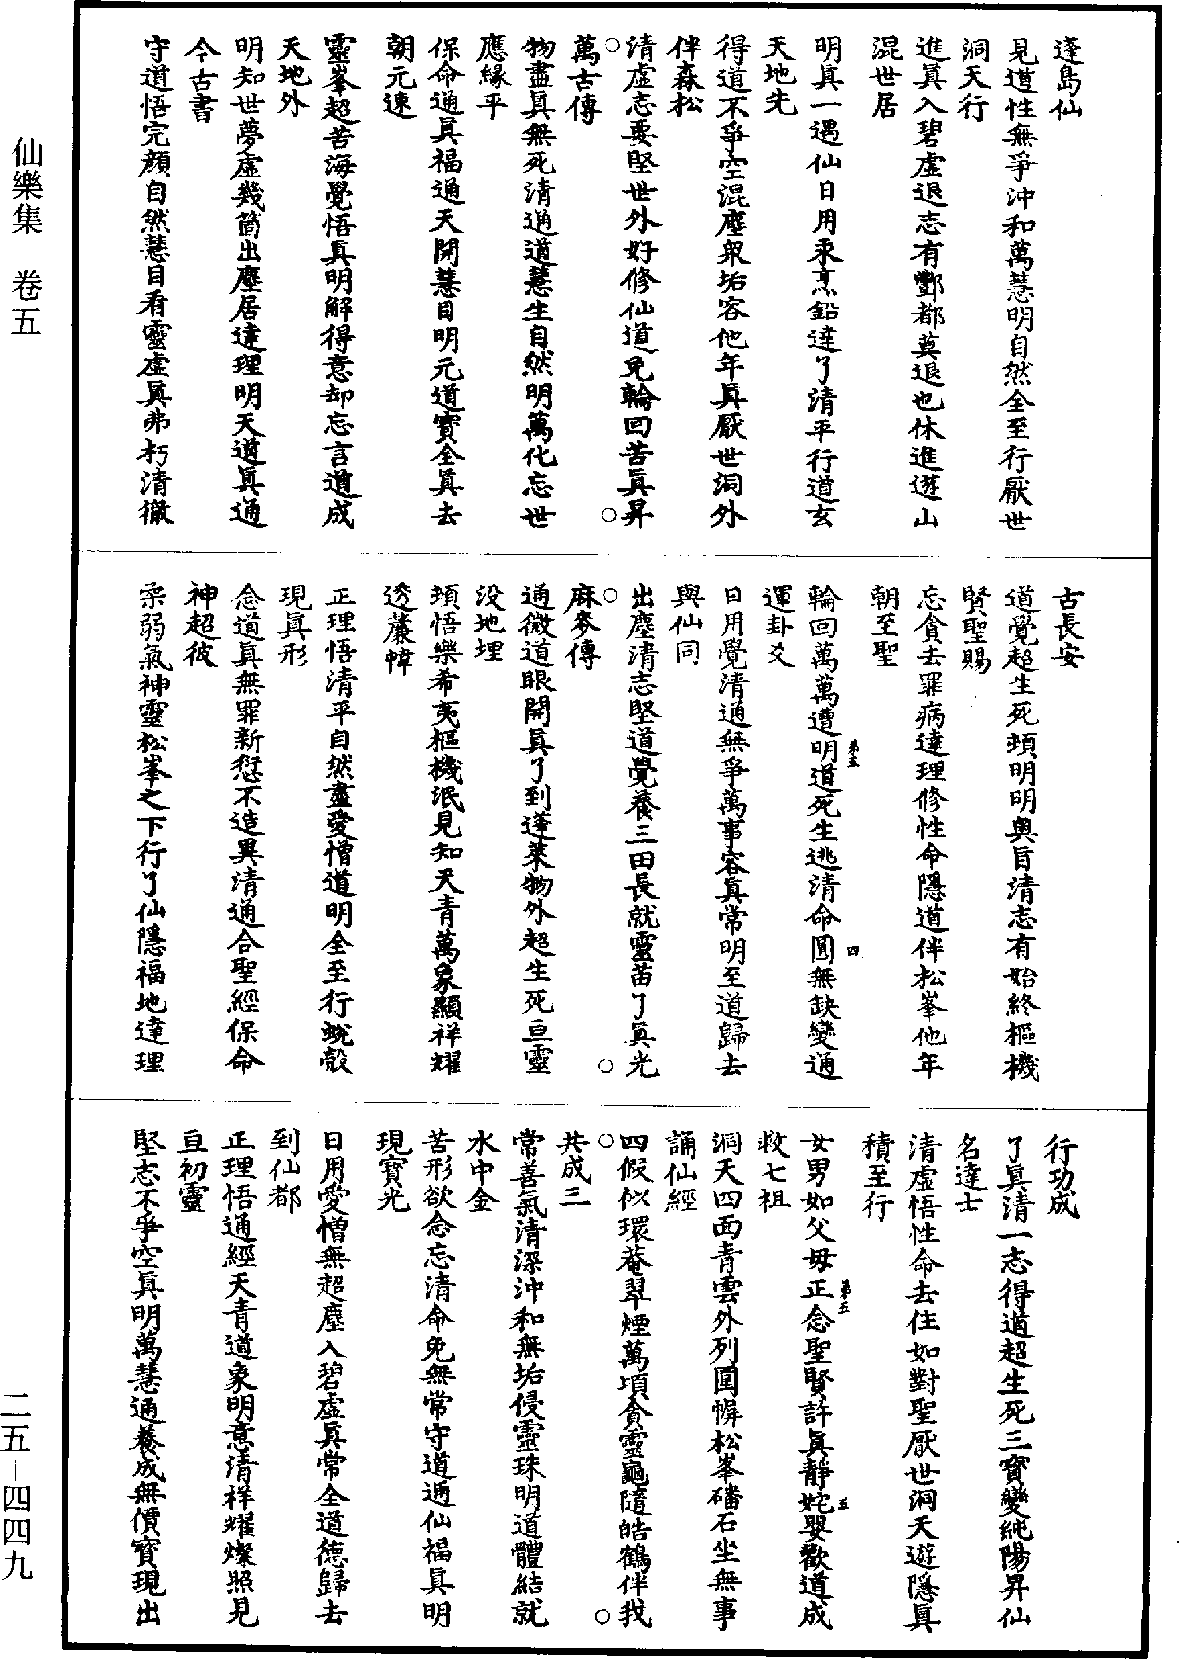 仙樂集　卷五
蓬島仙
見道性無爭沖和萬慧明自然全至行厭世
洞天行
進真入碧虛退志有酆都莫退也休進遊山
混世居
明真一遇仙日用汞烹鉛達了清平行道玄
天地先
得道不爭空混塵衆垢容他年真厭世洞外
伴森松
清虛志要堅世外好修仙道免輪回苦真昇
○萬古傳○
物盡真無死清通道慧生自然明萬化忘世
應緣平
保命通真福通天開慧目明元道寶全真去
朝元速
靈峯超苦海覺悟真明解得意却忘言道成
天地外
明知世夢虛幾箇出塵居達理明天道真通
今古書
守道悟完顏自然慧目看靈虛真弗朽清徹
古長安
道覺超生死頓明明輿旨清志有始終樞機
賢聖賜
忘貪去罪病達理修性命隱道伴松峯他年
朝至聖
輪回萬萬遭明道死生逃清命圓無缺變通
第五　四
運卦爻
日用覺清通無爭萬事容真常明至道歸去
與仙同
出塵清志堅道覺養三田長就靈苗了真光
○麻麥傳○
通微道眼開真了到蓬萊物外超生死亘靈
没地埋
頓悟樂希夷樞機泯見知天青萬象顯祥耀
透簾幃
正理悟清平自然盡愛憎道明全至行蛻殼
現真形
念道真無罪新愆不造異清通合聖經保命
神超彼
柔弱氣神靈松峯之下行了仙隱福地達理
行功成
了真清一志得道超生死三寶變純陽昇仙
名達士
清虛悟性命去住如對聖厭世洞天遊隱真
積至行
女男如父母正念聖賢許真靜姹嬰歡道成
第五　五
救七祖
洞天四面青雲外列圍㡡松峯磻石坐無事
誦仙經
四假似環菴翠煙萬頃貪靈龜隨皓鶴伴我
○共成三○
常善氣清深沖和無垢侵靈珠明道體結就
水中金
苦形欲念忘清命免無常守道逓仙福真明
現寶光
日用愛憎無超塵入碧虛真常全道德歸去
到仙都
正理悟通經天青道象明意清祥耀燦照見
亘初靈
堅志不爭空真明萬慧通養成無價寶現出
二五－四四九